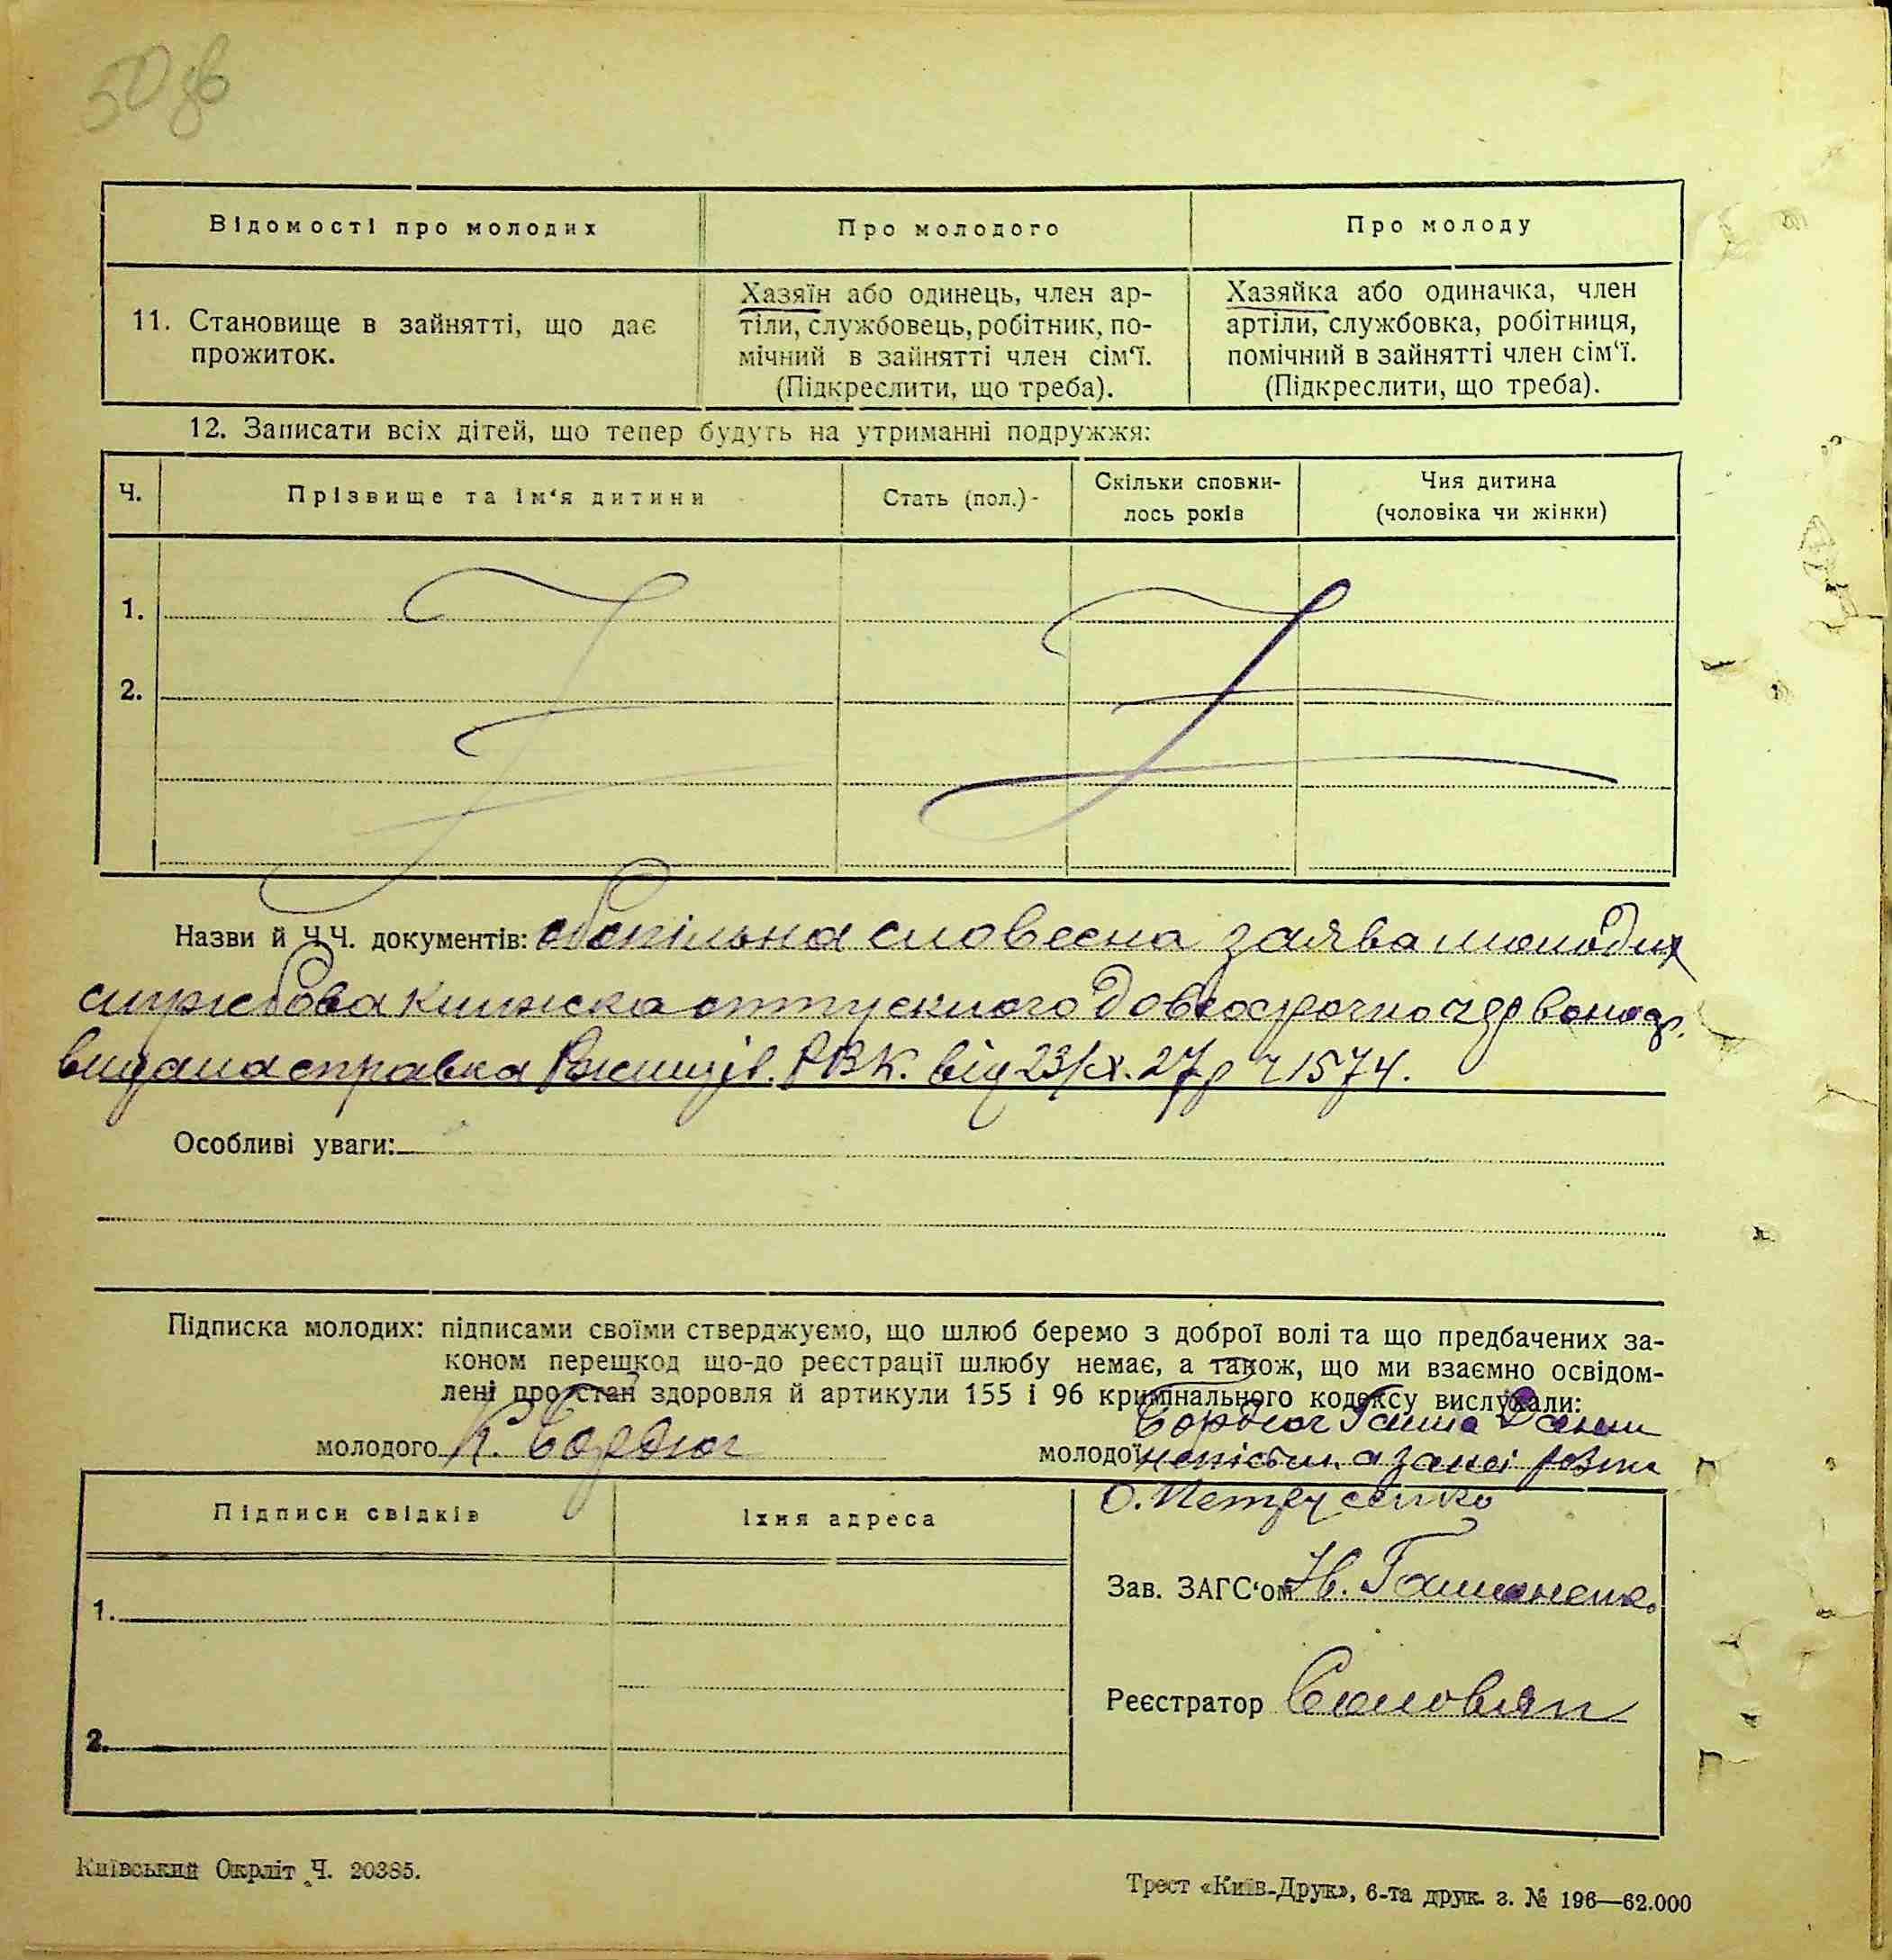 50 зв
Відомості про молодих
Про молодого
Про молоду
11. Становище в зайнятті, що дає
прожиток.
Хазяїн або одинець, член ар-
тіли, службовець, робітник, по-
мічний в зайнятті член сім'ї.
(Підкреслити, що треба).
Хазяйка або одиначка, член
артіли, службовка, робітниця,
помічний в зайнятті член сім'ї.
(Підкреслити, що треба).
12. Записати всіх дітей, що тепер будуть на утриманні подружжя:
Ч.
Прізвище та ім'я дитини
Стать (пол.)
Скільки сповни-
лось років
Чия дитина
(чоловіка чи жінки)
1.
2.
Назви й ЧЧ. документів: словесна заява молодих
службова книжка отпускного
видана справка Ржищів. РВК. від 23/ІХ. 27р ч 1574.
Особливі уваги:
Підписка молодих: підписами своїми стверджуємо, що шлюб беремо з доброї волі та що предбачених за-
коном перешкод що-до реєстрації шлюбу немає, а також, що ми взаємно освідом-
лені про стан здоровля й артикули 155 і 96 кримінального кодексу вислухали:
молодого К. Бордюг
Бордюг Ганна
молодої неписьм. а за неї
О. Петрусенко
Підписи свідків
Їхня адреса
1.
2.
Зав. ЗАГС'ом
Реєстратор
Київський Окрліт Ч. 20385.
Трест «Київ-Друк», 6-та друк. з. № 196—62.000